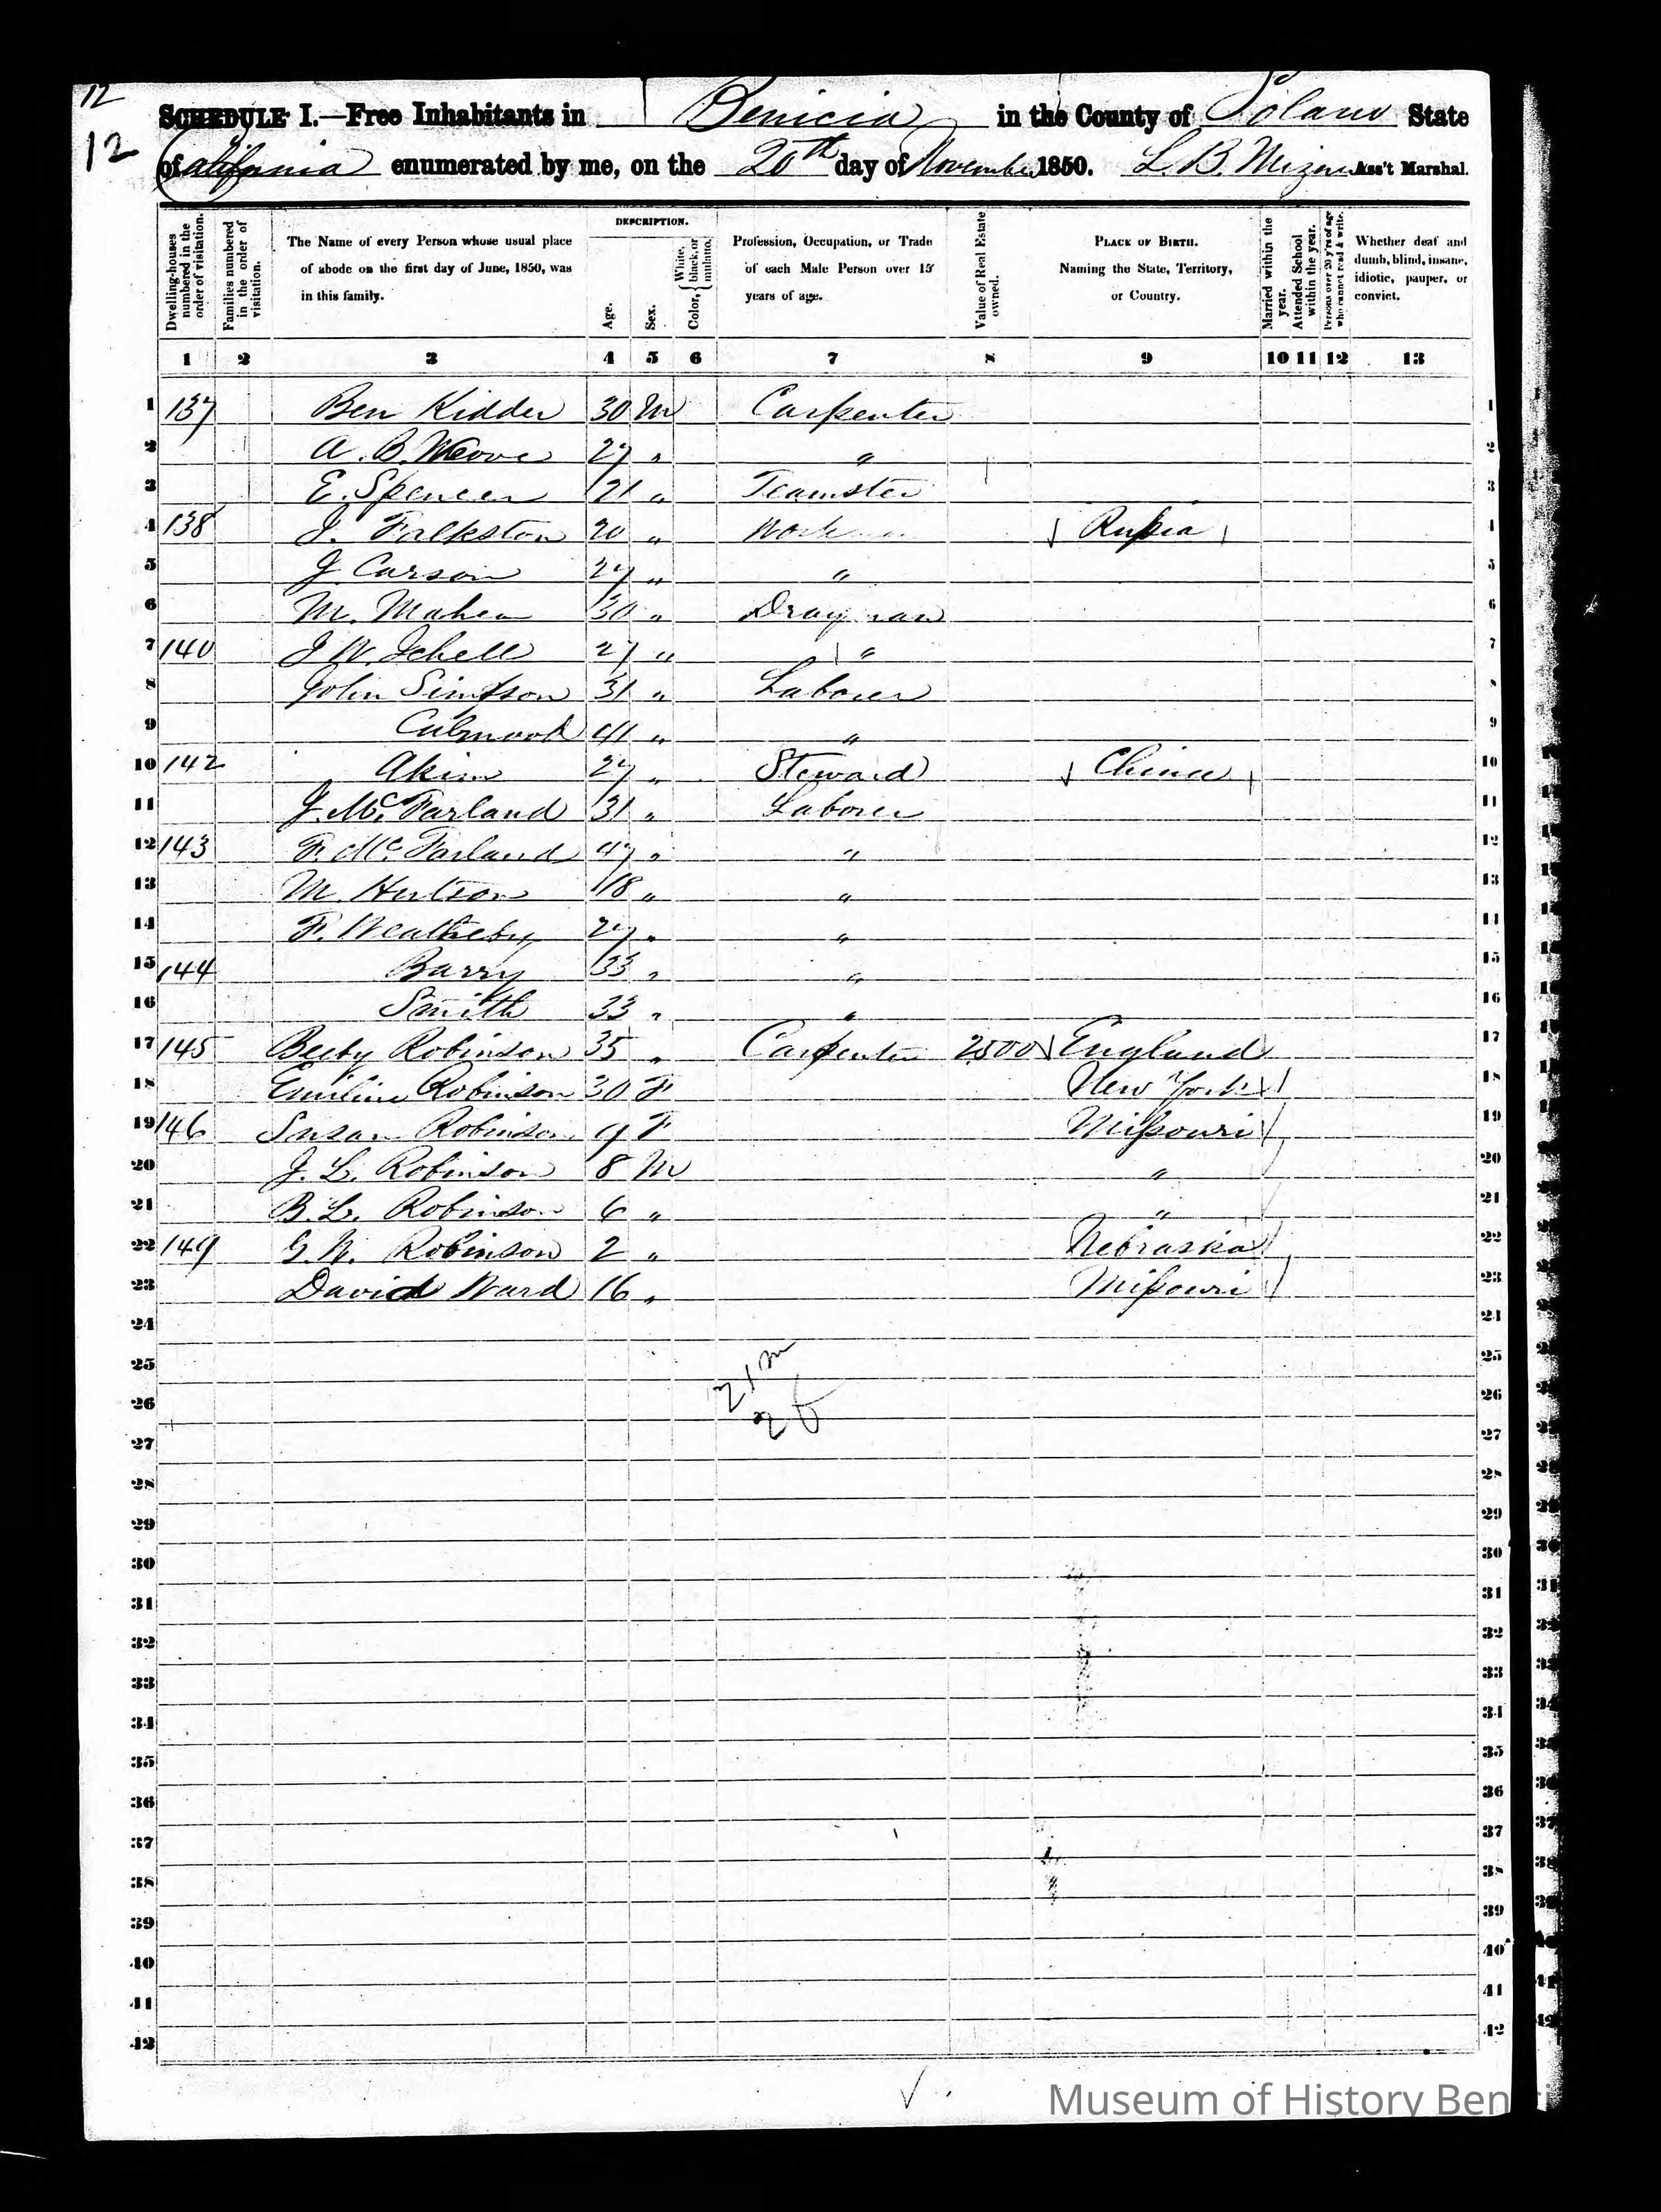 12
SCHEDULE I.—Free Inhabitants in Benicia in the County of Solano State
12
of California enumerated by me, on the 20th day of November 1850. L. B. Mizner Ass't Marshal.
Dwelling-houses numbered in the order of visitation.
Families numbered in the order of visitation.
The Name of every Person whose usual place of abode on the first day of June, 1850, was in this family.
DESCRIPTION.
Age.
Sex.
Color, { White, black, or mulatto.
Profession, Occupation, or Trade of each Male Person over 15 years of age.
Value of Real Estate owned.
PLACE OF BIRTH. Naming the State, Territory, or Country.
Married within the year.
Attended School within the year.
Persons over 20 y'rs of age who cannot read & write.
Whether deaf and dumb, blind, insane, idiotic, pauper, or convict.
1 2 3 4 5 6 7 8 9 10 11 12 13
1 137 Ben Kidder 30 M Carpenter 1
2 A. B. 27 " " 2
3 E. Spencer 21 " Teamster 3
4 138 J. Falkston 20 " Workman Russia 4
5 J. Carson 27 " " 5
6 M. Maher 30 " Drayman 6
7 140 J. W. Schell 27 " " 7
8 John Simpson 31 " Laborer 8
9 41 " " 9
10 142 Akim 27 " Steward China 10
11 J. McFarland 31 " Laborer 11
12 143 F. McFarland 47 " " 12
13 M. Hutson 18 " " 13
14 F. Weatheby 27 " " 14
15 144 Barry 33 " " 15
16 Smith 33 " " 16
17 145 Beeby Robinson 35 " Carpenter 2500 England 17
18 Emiline Robinson 30 F New York 18
19 146 Susan Robinson 9 F Missouri 19
20 J. L. Robinson 8 M " 20
21 B. L. Robinson 6 " " 21
22 149 G. N. Robinson 2 " Nebraska 22
23 David Ward 16 " Missouri 23
24 24
25 21 m 25
26 2 f 26
27 27
28 28
29 29
30 30
31 31
32 32
33 33
34 34
35 35
36 36
37 37
38 38
39 39
40 40
41 41
42 42
Museum of History Beni